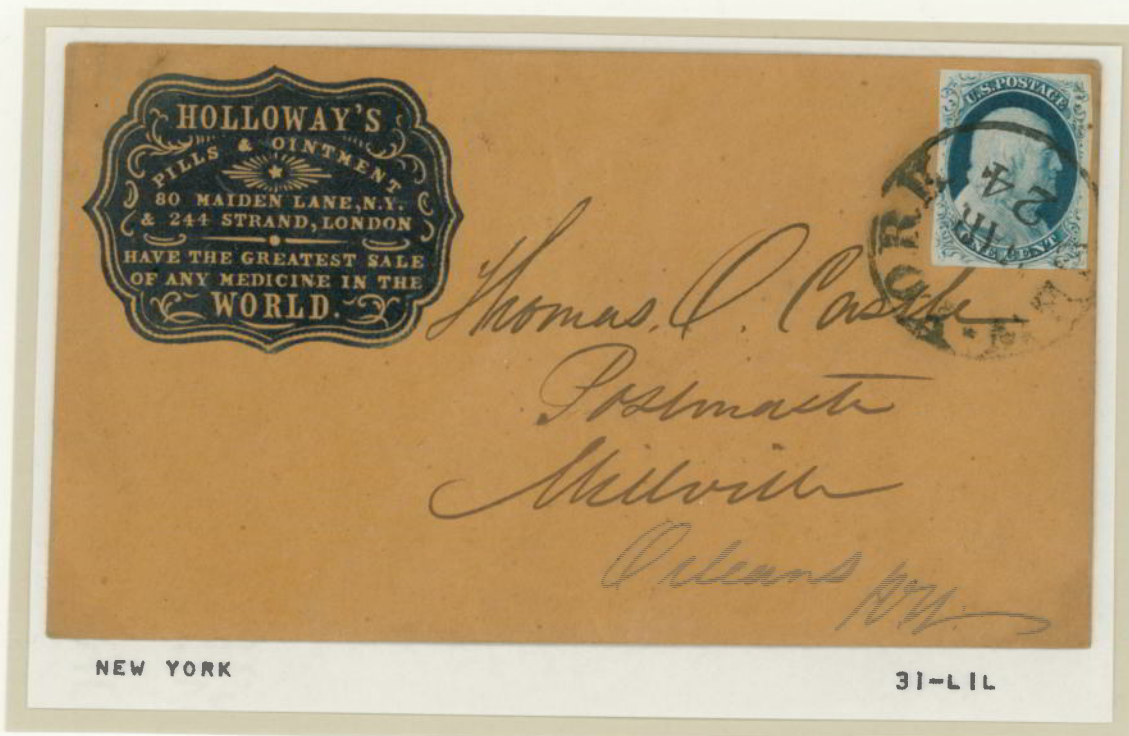 HOLLOWAY'S
PILLS & OINTMENT
80 MAIDEN LANE, N.Y.
& 244 STRAND, LONDON
HAVE THE GREATEST SALE
OF ANY MEDICINE IN THE
WORLD.
U.S. POSTAGE
ONE CENT
YORK
24
Thomas. O. Castle
Postmaster
Millville
Orleans
NY.
NEW YORK
31-L1L